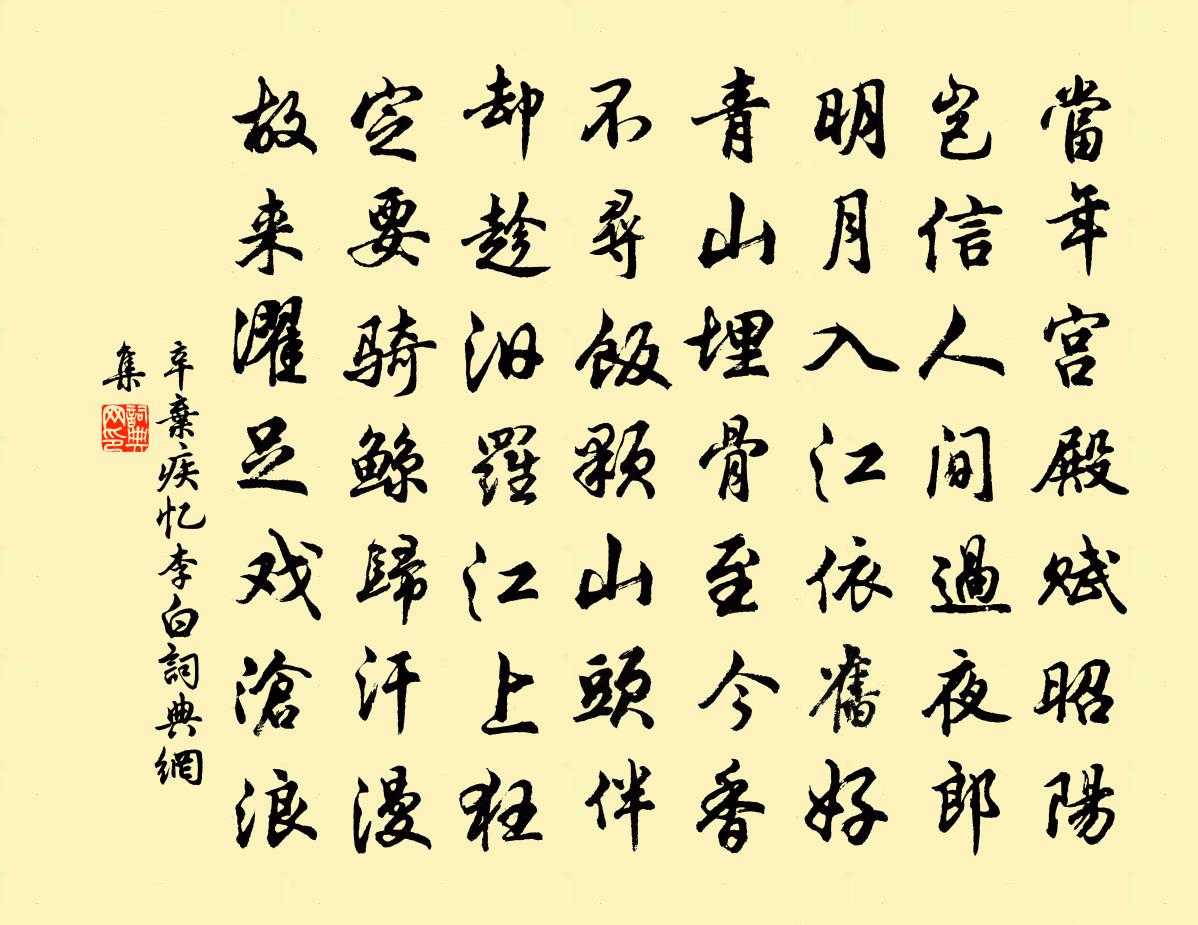 當年宮殿賦昭陽
豈信人間過夜郎
明月入江依舊好
青山埋骨至今香
不尋飯顆山頭伴
却趁汨羅江上狂
定要騎鯨歸汗漫
故来濯足戏滄浪
辛棄疾忆李白詞典網
集
詞典网印